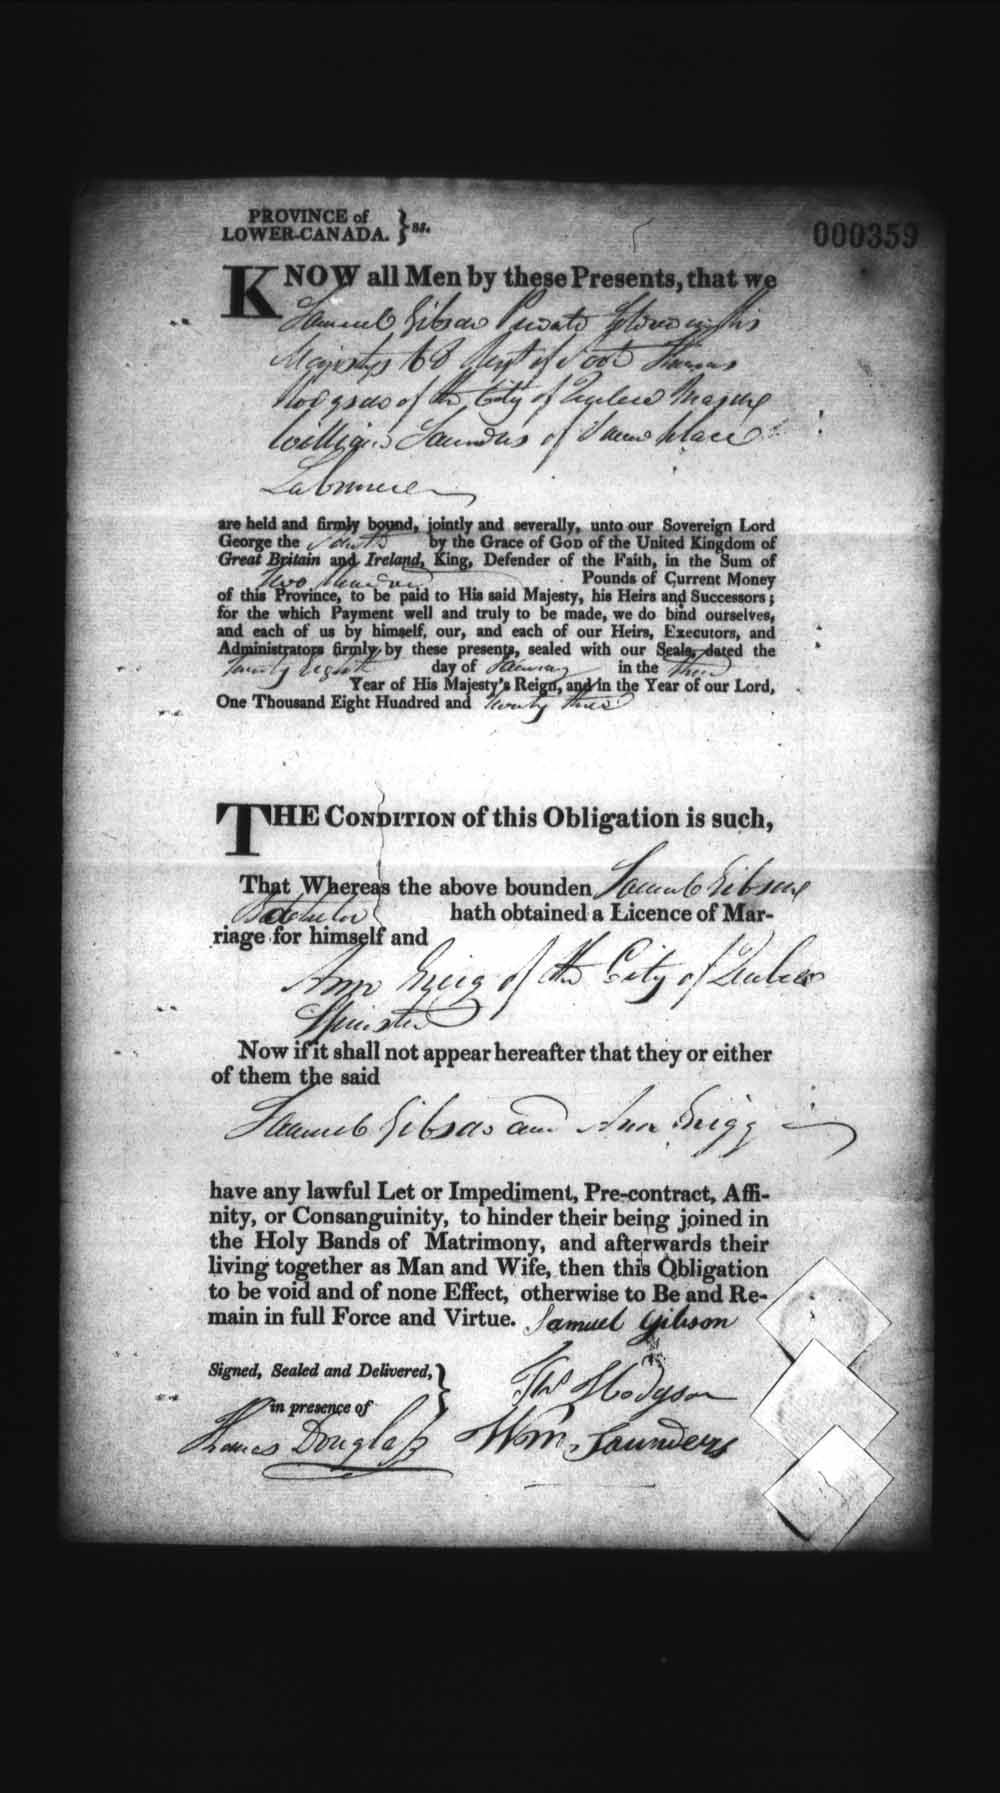 PROVINCE of
LOWER-CANADA. } ss.
000359
KNOW all Men by these Presents, that we
Samuel Gibson Private Soldier in His
Majestys 68 Regt of Foot Thomas
Hodgson of the City of Quebec
William Saunders of same place
Labourer
are held and firmly bound, jointly and severally, unto our Sovereign Lord
George the Fourth by the Grace of GOD of the United Kingdom of
Great Britain and Ireland, King, Defender of the Faith, in the Sum of
Two Hundred Pounds of Current Money
of this Province, to be paid to His said Majesty, his Heirs and Successors;
for the which Payment well and truly to be made, we do bind ourselves,
and each of us by himself, our, and each of our Heirs, Executors, and
Administrators firmly by these presents, sealed with our Seals, dated the
Twenty Eighth day of January in the Third
Year of His Majesty's Reign, and in the Year of our Lord,
One Thousand Eight Hundred and Twenty three
THE CONDITION of this Obligation is such,
That Whereas the above bounden Samuel Gibson
Batchelor hath obtained a Licence of Mar-
riage for himself and
Ann Grigg of the City of Quebec
Spinster
Now if it shall not appear hereafter that they or either
of them the said
Samuel Gibson and Ann Grigg
have any lawful Let or Impediment, Pre-contract, Affi-
nity, or Consanguinity, to hinder their being joined in
the Holy Bands of Matrimony, and afterwards their
living together as Man and Wife, then this Obligation
to be void and of none Effect, otherwise to Be and Re-
main in full Force and Virtue. Samuel Gibson
Signed, Sealed and Delivered, } Thos Hodgson
in presence of
Douglass Wm. Saunders